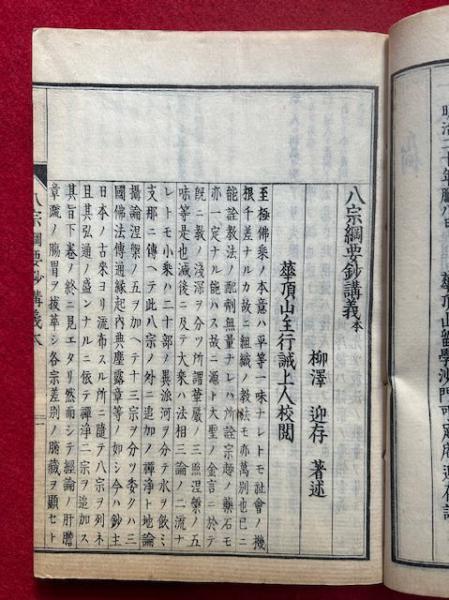 明治二十年臘八日
華頂山勸學沙門 迎存記
八宗綱要鈔講義本
柳澤 迎存 著述
華頂山主行誡上人校閲
至極佛乘ノ本意ハ平等一味ナレトモ社會ノ機
根千差ナルカ故ニ組織ノ教法モ亦萬別也已ニ
能詮教法ノ配劑無量ナレハ所詮宗趣ノ藥石モ
亦一定ナル能ハス故ニ源ト大聖ノ金言ニ於テ
既ニ教ノ淺深ヲ分ツ所謂華嚴ノ三照涅槃ノ五
味等是也滅後ニ及テ大衆ハ法相三論ノ二流ナ
レトモ小乘ハ二十部ノ異派河ヲ分テ水ヲ飮ミ
支那ニ傳ヘテ此八宗ノ外ニ追加ノ禪淨ト地論
攝論涅槃ノ五ヲ加ヘテ十三宗ヲ分ツ委クハ三
國佛法傳通縁起内典塵露章等ノ如シ今ハ鈔主
日本ノ古來ヨリ流布スル所ニ隨テ八宗ヲ列ネ
且其弘通ノ盛ンナルニ依テ禪淨二宗ヲ追加ス
其旨下卷ノ終ニ見エタリ然而シテ經論ノ肝膽
章疏ノ膓胃ヲ拔萃シ各宗差別ノ腦藏ヲ顯セト
八宗綱要鈔講義本